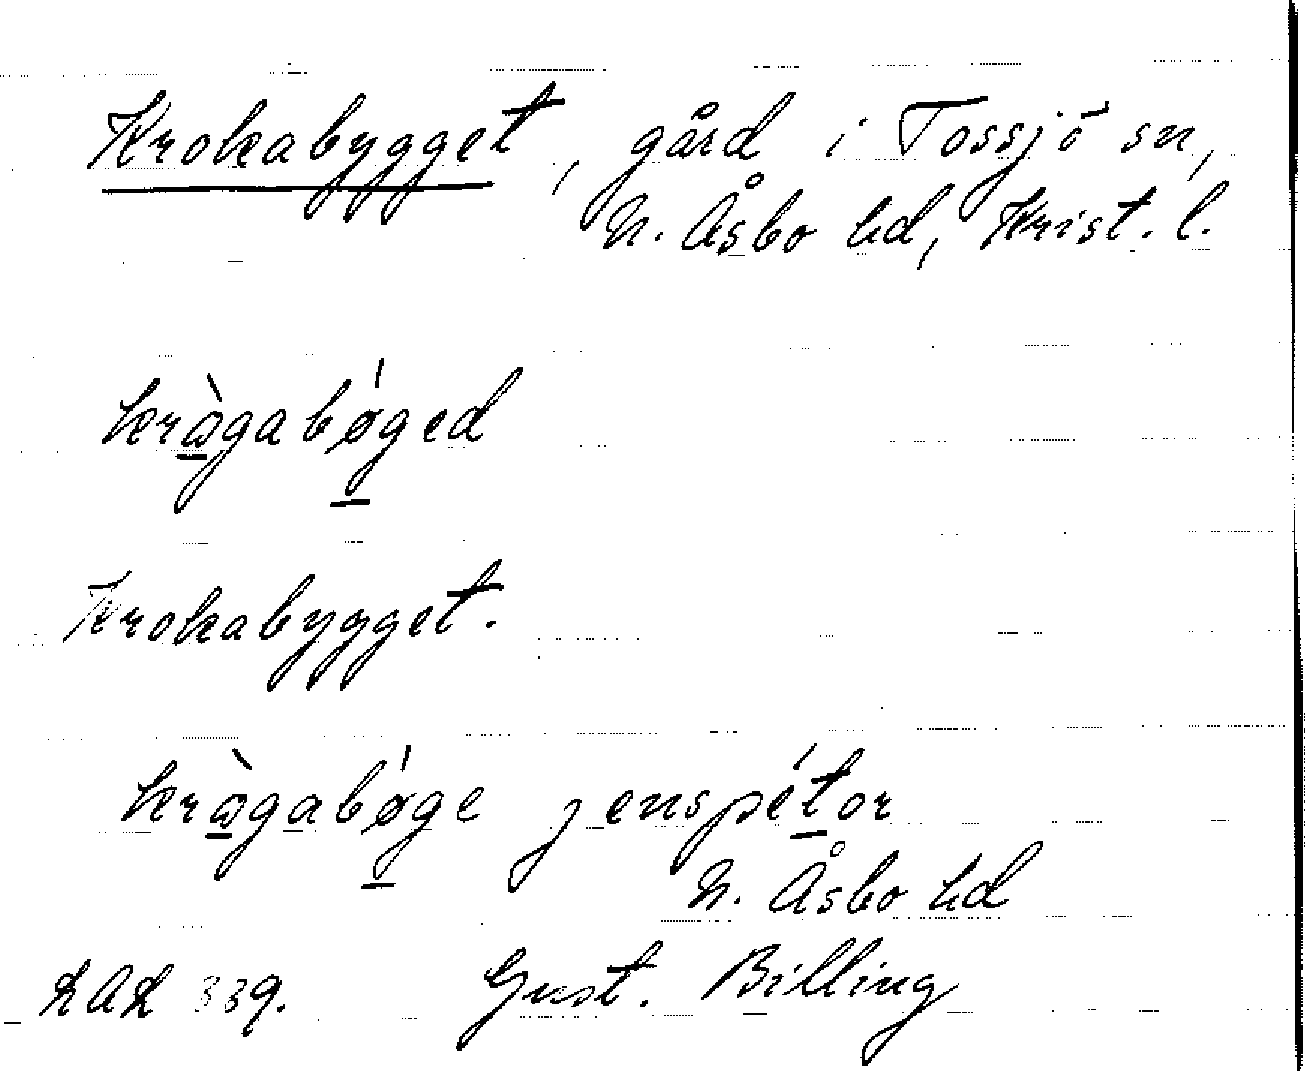 Krokabygget, gård i Tossjö sn,
N. Åsbo hd, Krist. l.
krɷ̀gabǿged
Krokabygget.
krɷ̀gabǿge jenspétor
N. Åsbo hd
LAL 339. Gust. Billing